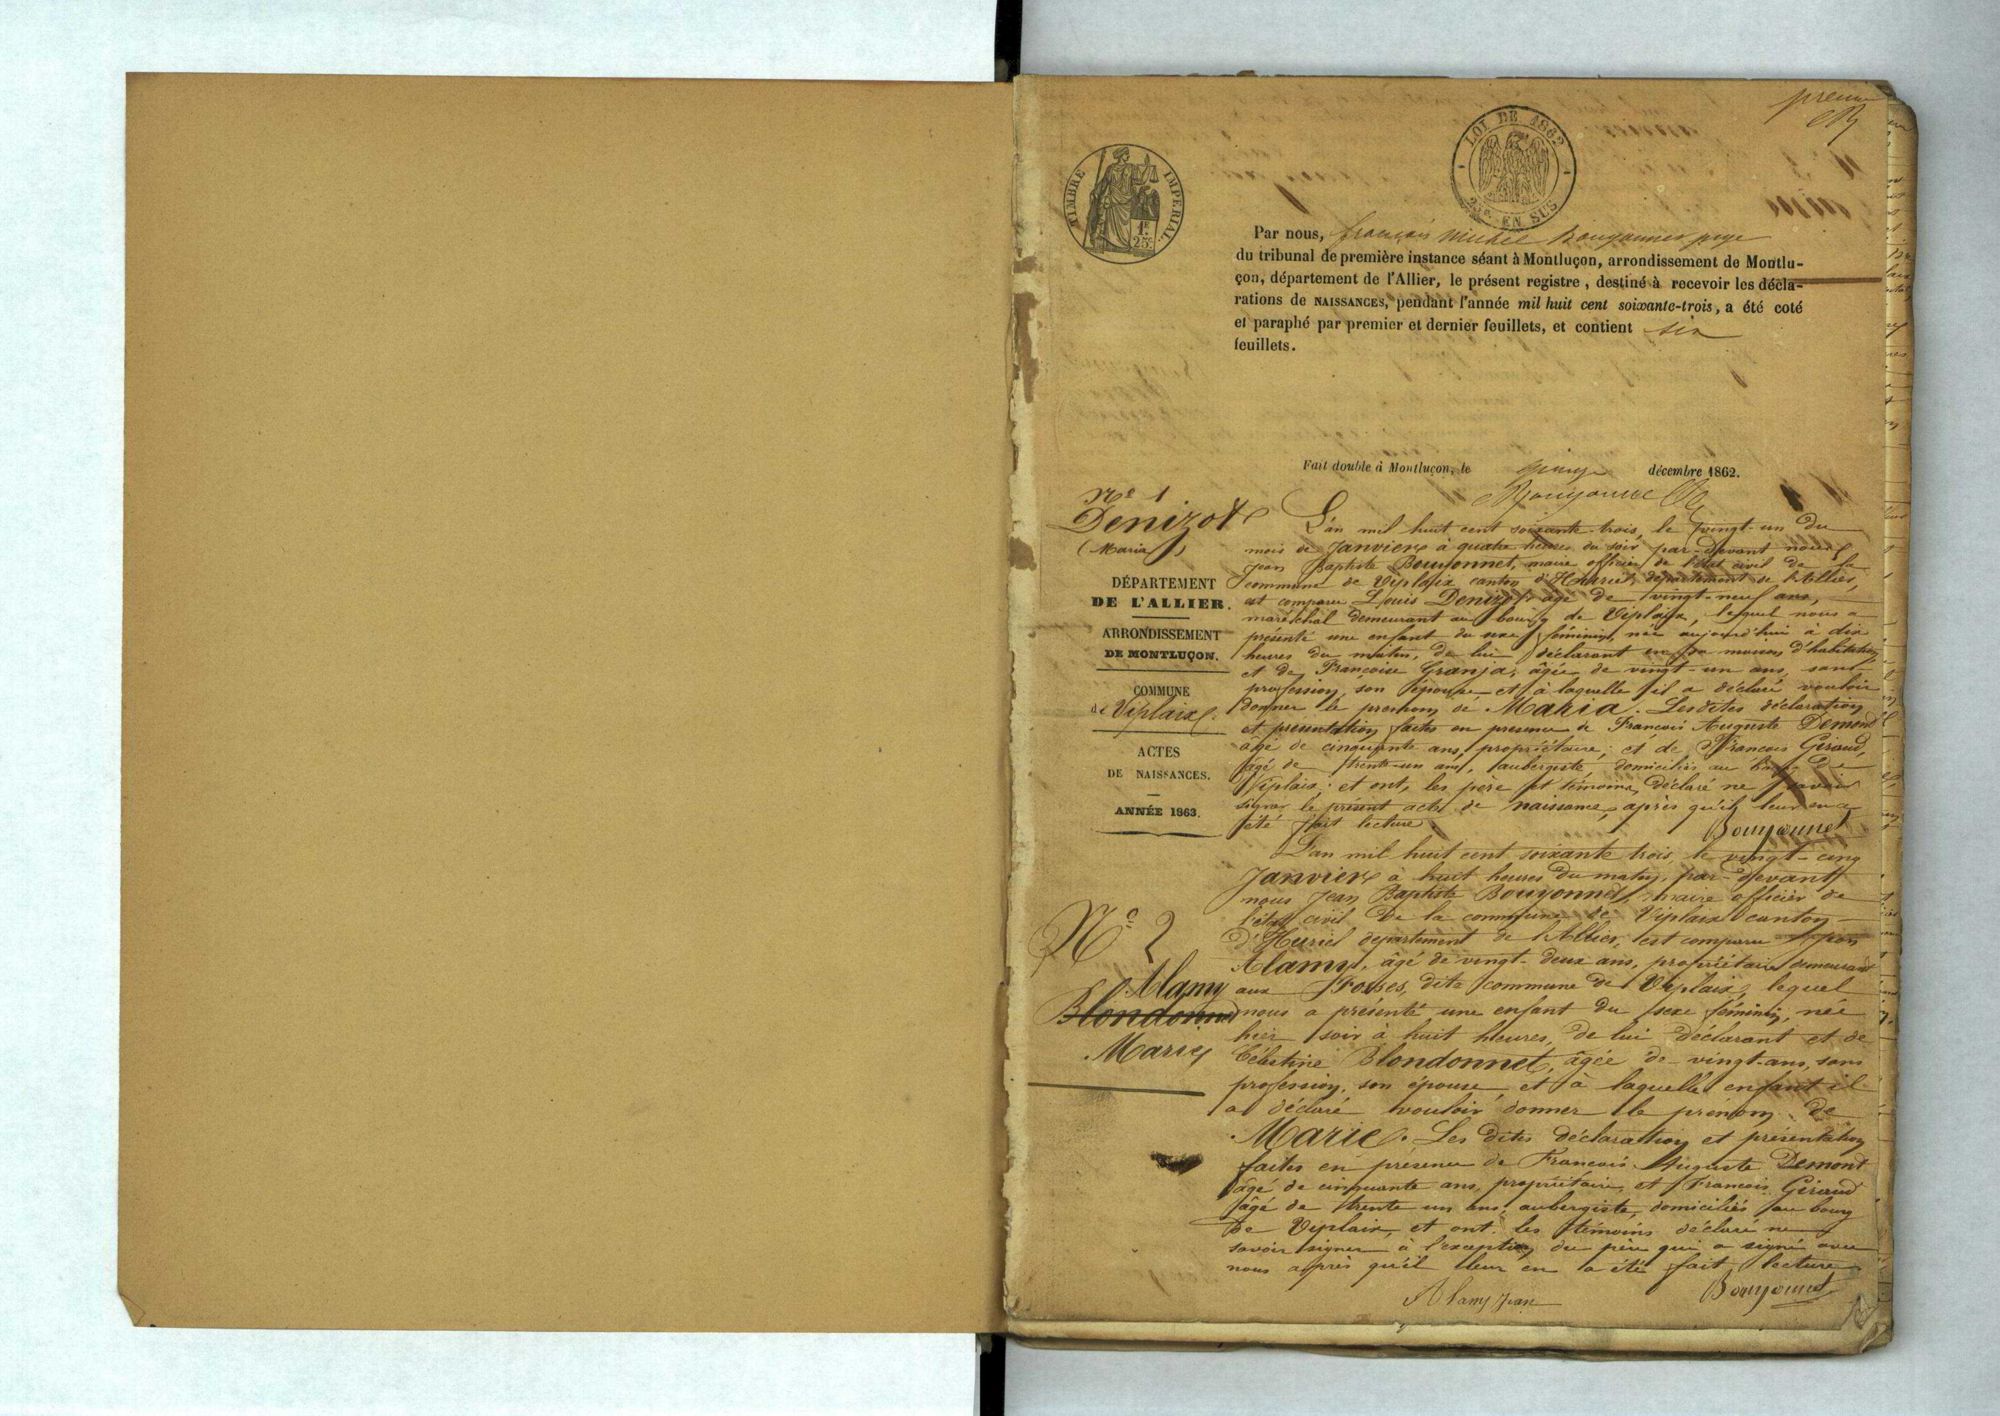 premier
LOI DE 1862
2 Des EN SUS
TIMBRE IMPERIAL
1F
25c
Par nous, françois michel Bouyonnet juge
du tribunal de première instance séant à Montluçon, arrondissement de Montlu-
çon, département de l'Allier, le présent registre, destiné à recevoir les décla-
rations de NAISSANCES, pendant l'année mil huit cent soixante-trois, a été coté
et paraphé par premier et dernier feuillets, et contient six
feuillets.
Fait double à Montluçon, le quinze décembre 1862.
N° 1
Denizot
(Maria)
DÉPARTEMENT
DE L'ALLIER.
ARRONDISSEMENT
DE MONTLUÇON.
COMMUNE
de Viplaix
ACTES
DE NAISSANCES.
ANNÉE 1863.
L'an mil huit cent soixante trois, le vingt-un du
mois de Janvier à quatre heures du soir par-devant nous
Jean Baptiste Bouyonnet, maire officier de l'état civil de la
commune de Viplaix canton d'Huriel, département de l'Allier,
est comparu Louis Denizot, âgé de vingt-neuf ans,
maréchal demeurant au bourg de Viplaix, lequel nous a
présenté une enfant du sexe féminin, née aujourd'hui à dix
heures du matin, de lui déclarant en sa maison d'habitation
et de Françoise Granja, âgée de vingt-un ans, sans
profession, son épouse et à laquelle il a déclaré vouloir
donner le prénom de Maria. Les dites déclaration
et présentation faites en présence de François Auguste Demont
âgé de cinquante ans, propriétaire, et de François Giraud,
âgé de trente-un ans, aubergiste, domiciliés au bourg de
Viplaix; et ont, les père et témoins, déclaré ne savoir
signer le présent acte de naissance, après qu'il leur en a
été fait lecture
Bouyonnet
N° 2
Alamy
Blondonnet
Marie
L'an mil huit cent soixante trois, le vingt-cinq
Janvier à huit heures du matin, par-devant
nous Jean Baptiste Bouyonnet, maire officier de
l'état civil de la commune de Viplaix canton
d'Huriel département de l'Allier, est comparu Jean
Alamy, âgé de vingt-deux ans, propriétaire demeurant
aux Fosses, dite commune de Viplaix, lequel
nous a présenté une enfant du sexe féminin, née
hier soir à huit heures, de lui déclarant et de
Célestine Blondonnet, âgée de vingt-ans, sans
profession, son épouse, et à laquelle enfant il
a déclaré vouloir donner le prénom de
Marie. Les dites déclaration et présentation
faites en présence de François Auguste Demont
âgé de cinquante ans, propriétaire, et François Giraud
âgé de trente un ans, aubergiste, domiciliés au bourg
de Viplaix, et ont les témoins déclaré ne
savoir signer à l'exception du père qui a signé avec
nous après qu'il leur en a été fait lecture
Alamy Jean
Bouyonnet